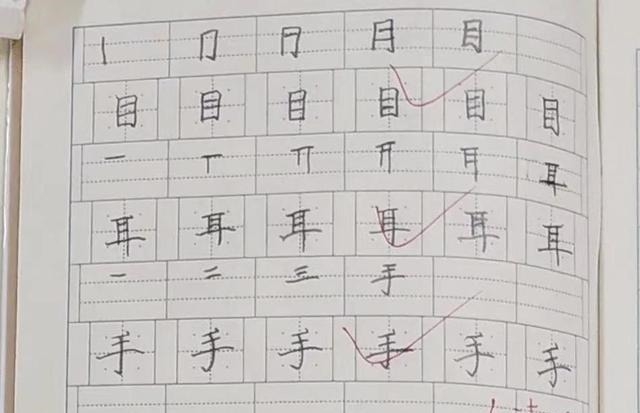 丨 冂 冃 月 目
目 目 目 目 目 目
一 丅 丌 耳
耳 耳 耳 耳 耳 耳
一 二 三 手
手 手 手 手 手 手